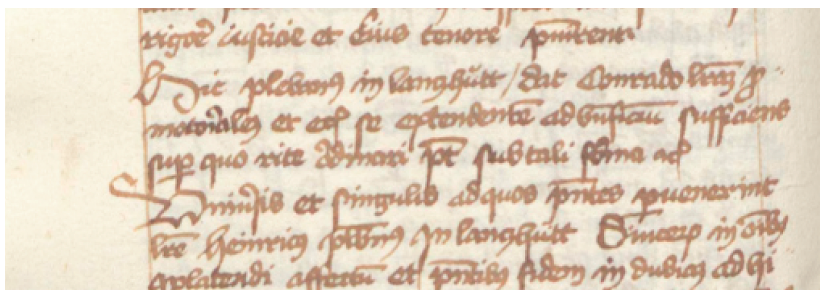 rigore iusticie et eius tenore puniretur
Hic plebanus in lanczhutt / dat Conrado lras pro
motoriales et eciam se extendentem ad beneficium sufficiens
super quo rite ordinari potest sub tali forma etc
Uniuersis et singulis ad quos presentes peruenerint
lre heinricus plebanus in lanczhutt Sincerum in omnibus
complacendi affectum et presentibus fidem in dubiam adhi